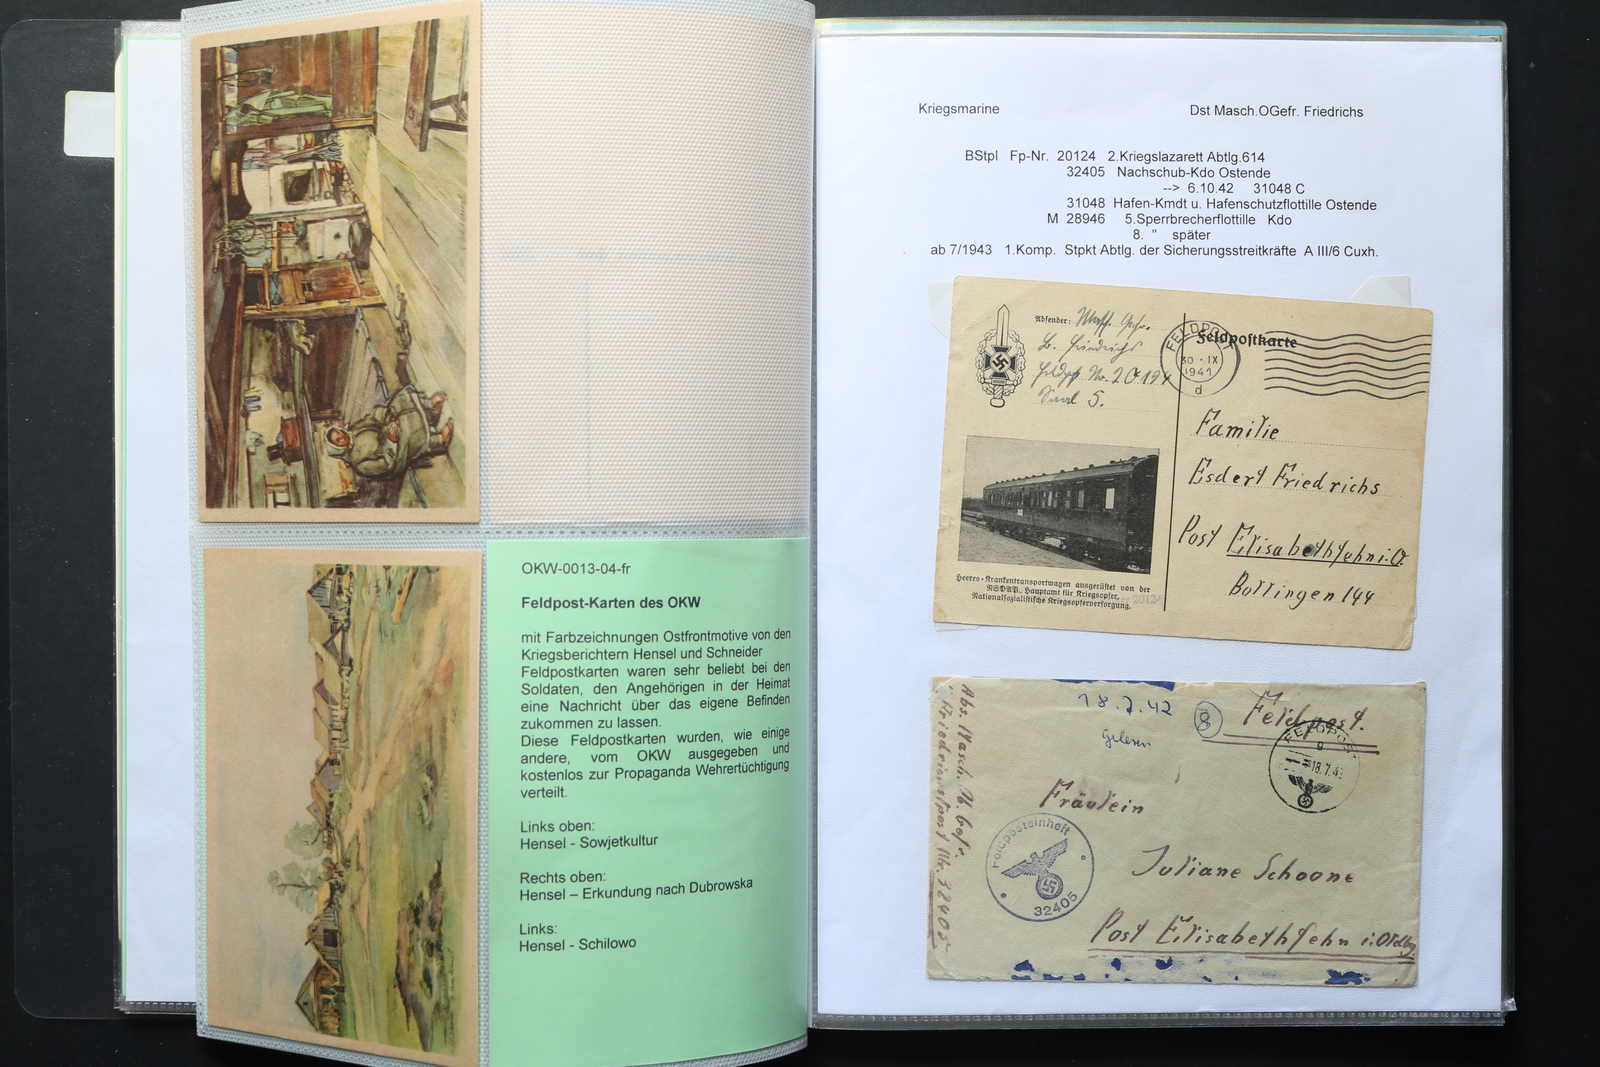 OKW-0013-04-fr
Feldpost-Karten des OKW
mit Farbzeichnungen Ostfrontmotive von den
Kriegsberichtern Hensel und Schneider
Feldpostkarten waren sehr beliebt bei den
Soldaten, den Angehörigen in der Heimat
eine Nachricht über das eigene Befinden
zukommen zu lassen.
Diese Feldpostkarten wurden, wie einige
andere, vom OKW ausgegeben und
kostenlos zur Propaganda Wehrertüchtigung
verteilt.
Links oben:
Hensel - Sowjetkultur
Rechts oben:
Hensel – Erkundung nach Dubrowska
Links:
Hensel - Schilowo
Kriegsmarine Dst Masch.OGefr. Friedrichs
BStpl Fp-Nr. 20124 2.Kriegslazarett Abtlg.614
32405 Nachschub-Kdo Ostende
--> 6.10.42 31048 C
31048 Hafen-Kmdt u. Hafenschutzflottille Ostende
M 28946 5.Sperrbrecherflottille Kdo
8. " später
ab 7/1943 1.Komp. Stpkt Abtlg. der Sicherungsstreitkräfte A III/6 Cuxh.
Absender:
Friedrichs
Saal 5.
Feldpostkarte
FELDPOST
30 - IX
1941
d
Familie
Esdert Friedrichs
Post Elisabethfehn i. O.
Bollingen 144
Heeres-Krankentransportwagen ausgerüstet von der
NSDAP, Hauptamt für Kriegsopfer,
Nationalsozialistische Kriegsopferversorgung.
18.7.42
8
Feldpost.
Gelesen
FELDPOST
g
18.7.42
Fräulein
Juliane Schoone
Post Elisabethfehn i. Oldbg
Feldposteinheit
32405
Abs. Masch.
Friedrichs
32405